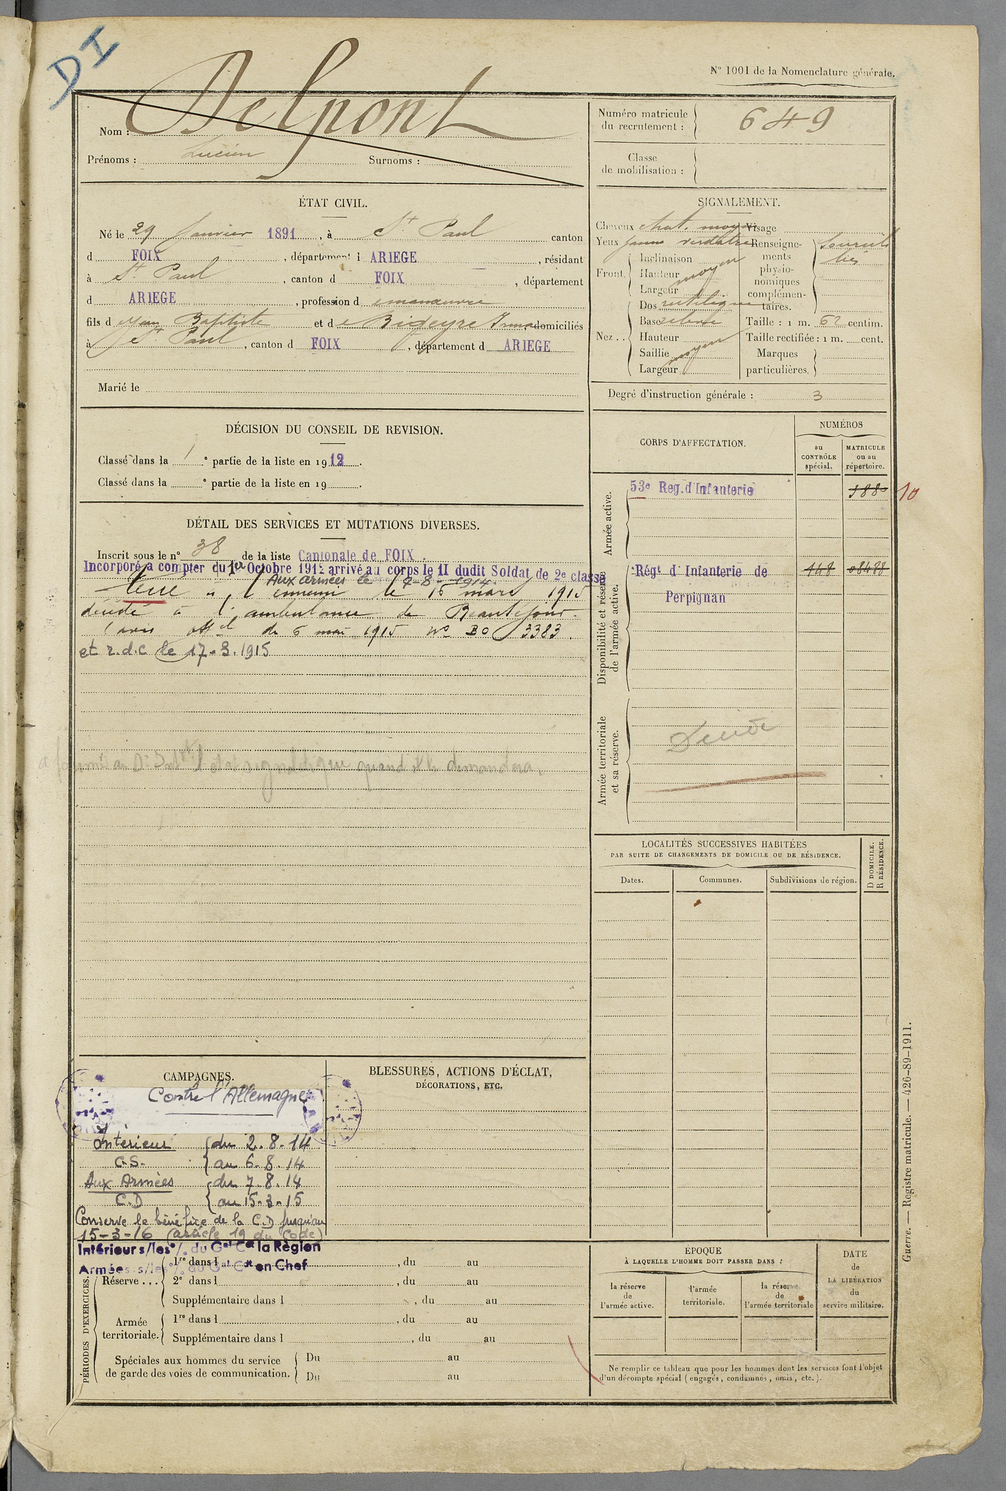 DI
N° 1001 de la Nomenclature générale.
Nom : Delpont
Prénoms : Lucien Surnoms :
Numéro matricule du recrutement : 649
Classe de mobilisation :
ÉTAT CIVIL.
Né le 29 Janvier 1891, à St Paul canton
d FOIX, département d ARIEGE, résidant
à St Paul, canton d FOIX, département
d ARIEGE, profession de manœuvre
fils de Jean Baptiste et de Bideyre Irma domiciliés
à St Paul, canton d FOIX, département d ARIEGE
Marié le
SIGNALEMENT.
Cheveux chat. moyen Visage
Yeux jaune verdâtre Renseignements physionomiques complémentaires. Sourcils liés
Front. Inclinaison
Hauteur moyen
Largeur
Nez. Dos rectiligne
Base
Hauteur
Saillie moyen
Largeur
Taille : 1 m. 62 centim.
Taille rectifiée : 1 m. cent.
Marques particulières.
Degré d'instruction générale : 3
DÉCISION DU CONSEIL DE REVISION.
Classé dans la 1e partie de la liste en 1912.
Classé dans la e partie de la liste en 19
DÉTAIL DES SERVICES ET MUTATIONS DIVERSES.
Inscrit sous le n° 38 de la liste Cantonale de FOIX.
Incorporé à compter du 1er Octobre 1912 arrivé au corps le 11 dudit Soldat de 2e classe
Aux armées le 2-8-1914
Tué à l'ennemi le 15 mars 1915
décédé à l'ambulance de Beauséjour
(avis off el du 6 mai 1915 n° BO 3383.
et r.d.c. le 17.3.1915
CORPS D'AFFECTATION.
NUMÉROS
au CONTRÔLE spécial.
MATRICULE ou au répertoire.
Armée active.
53e Reg. d'Infanterie 1880 10
Disponibilité et réserve de l'armée active.
Régt d'Infanterie de 448 08488
Perpignan
Armée territoriale et sa réserve.
Décédé
LOCALITÉS SUCCESSIVES HABITÉES
PAR SUITE DE CHANGEMENTS DE DOMICILE OU DE RÉSIDENCE.
Dates. Communes. Subdivisions de région. D DOMICILE. R RÉSIDENCE.
CAMPAGNES.
Contre l'Allemagne
Intérieur du 2.8.14
C.S. au 6.8.14
Aux Armées du 7.8.14
C.D au 15-3-15
Conserve le bénéfice de la C.D jusqu'au
15-3-16 (article 19 du Code)
Intérieur s/les o/. du Gal Ct la Région
Armées s/les o/. du Gal Ct en Chef
BLESSURES, ACTIONS D'ÉCLAT,
DÉCORATIONS, ETC.
PÉRIODES D'EXERCICES.
Réserve... 1re dans l , du au
2e dans l , du au
Supplémentaire dans l , du au
Armée territoriale. 1re dans l , du au
Supplémentaire dans l , du au
Spéciales aux hommes du service de garde des voies de communication. Du au
Du au
ÉPOQUE
À LAQUELLE L'HOMME DOIT PASSER DANS :
la réserve de l'armée active.
l'armée territoriale.
la réserve de l'armée territoriale
DATE DE LA LIBÉRATION du service militaire.
Ne remplir ce tableau que pour les hommes dont les services font l'objet
d'un décompte spécial (engagés, condamnés, omis, etc.).
Guerre. — Registre matricule. — 426-89-1911.